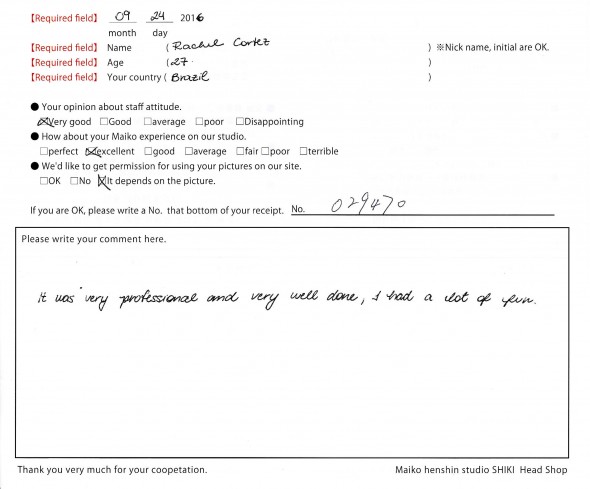 【Required field】 09 24 2016
month day
【Required field】 Name ( Rachel Cortez ) ※Nick name, initial are OK.
【Required field】 Age ( 27. )
【Required field】 Your country ( Brazil )
● Your opinion about staff attitude.
☒Very good □Good □average □poor □Disappointing
● How about your Maiko experience on our studio.
□perfect ☒excellent □good □average □fair □poor □terrible
● We'd like to get permission for using your pictures on our site.
□OK □No ☒It depends on the picture.
If you are OK, please write a No. that bottom of your receipt. No. 029470
Please write your comment here.
It was very professional and very well done, I had a lot of fun.
Thank you very much for your coopetation. Maiko henshin studio SHIKI Head Shop